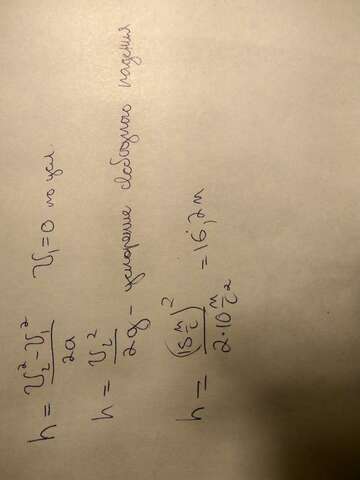 h = (v₂² - v₁²)/2a v₁ = 0 по усл
h = v₂²/2g - ускорение свободного падения
h = (18 м/с)²/(2·10 м/с²) = 16,2 м